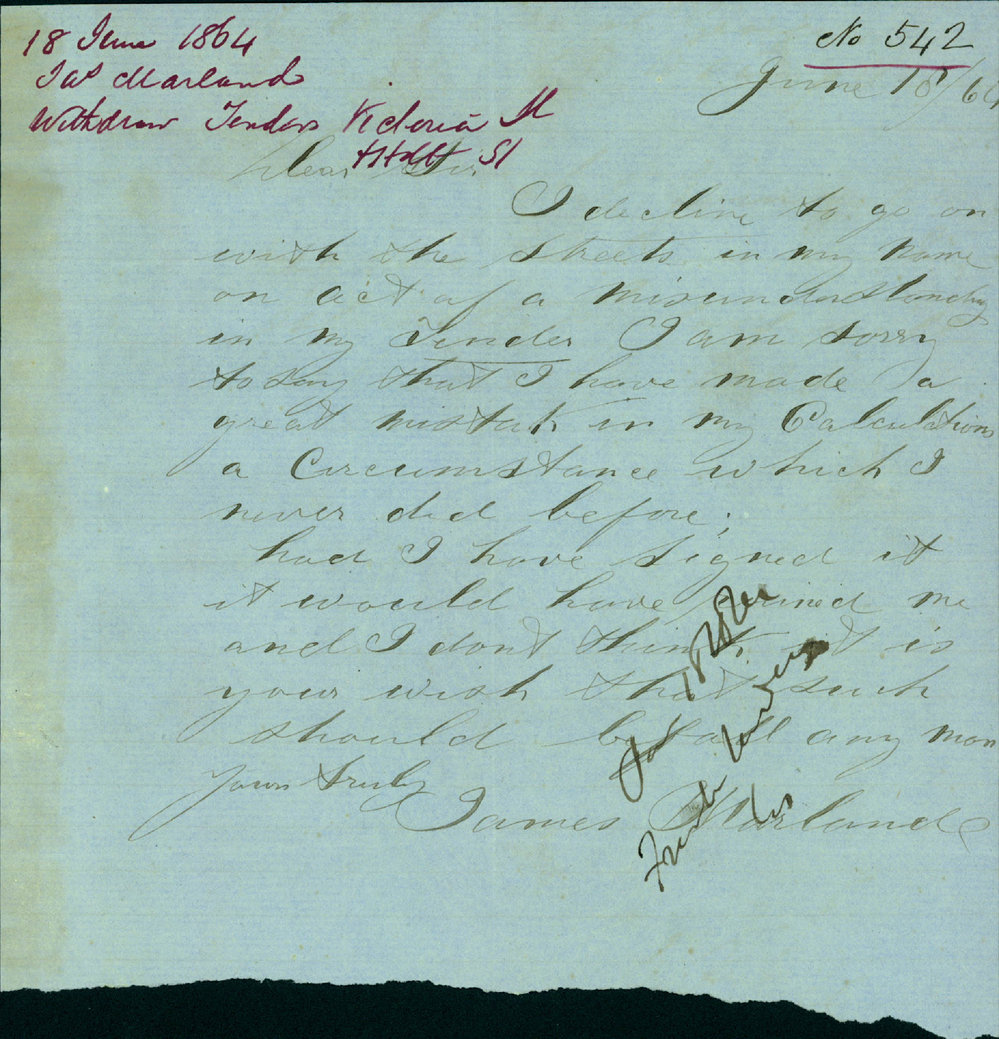 18 June 1864
Jas Marland
Withdraw Tenders Victoria St
& Holt St
No 542
June 18/64
Dear Sir
I decline to go on
with the streets in my name
on act of a misunderstanding
in my Tender I am sorry
to say that I have made a
great mistak in my Calculations
a Circumstance which I
never did before;
had I have signed it
it would have ruined me
and I dont think it is
your wish that such
should befall any man
yours truly
James Marland